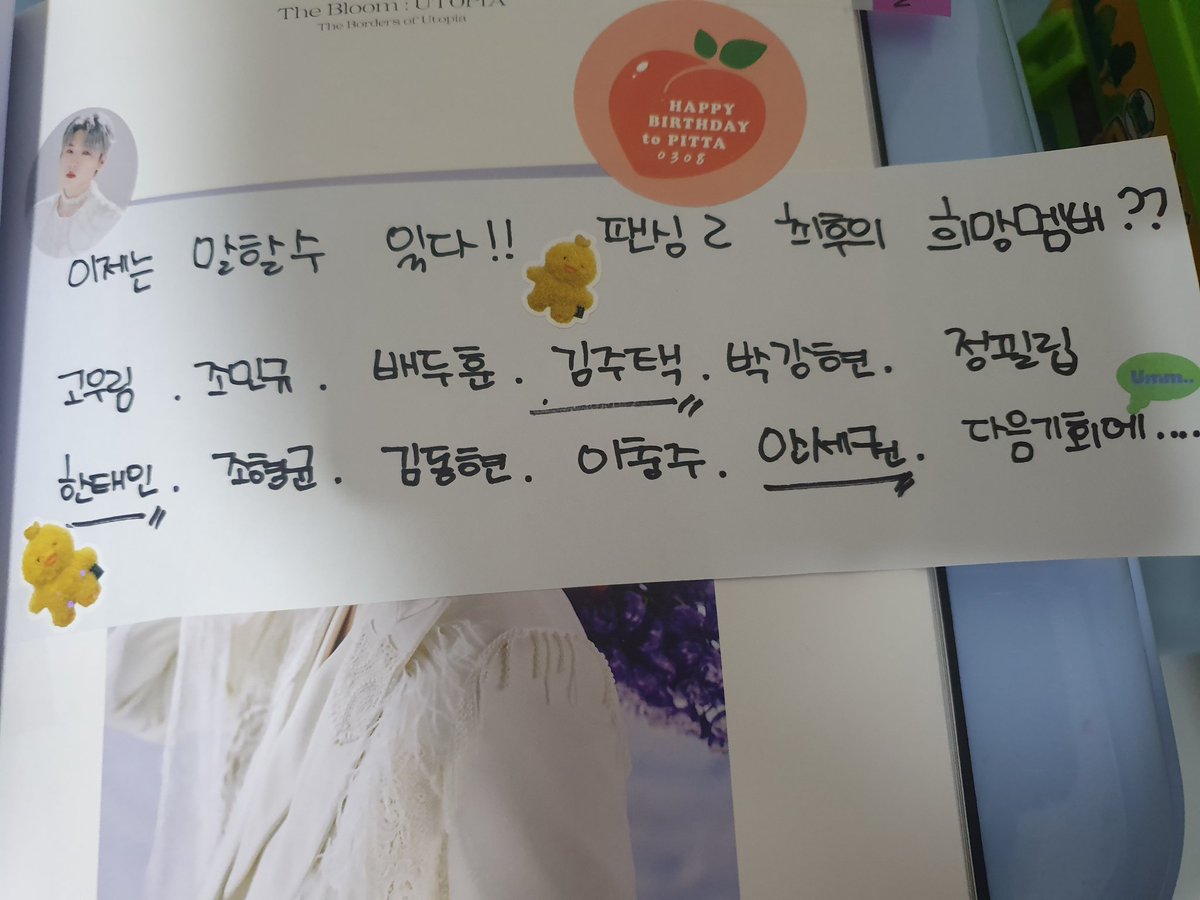 The Bloom : UTOPIA
The Borders of Utopia
2
HAPPY
BIRTHDAY
to PITTA
0308
이제는 말할수 있다!! 팬싱2 최후의 희망멤버??
고우림 . 조민규 . 배두훈 . 김주택 . 박강현 . 정필립
Umm..
한태인 . 조형균 . 김동현 . 이충주 . 안세권 . 다음기회에....